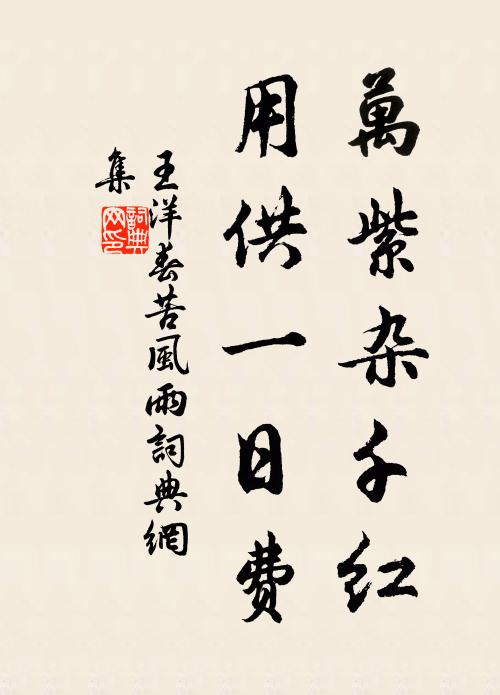 萬紫杂千红
用供一日费
王洋春苦風雨詞典網
集
詞典
网印